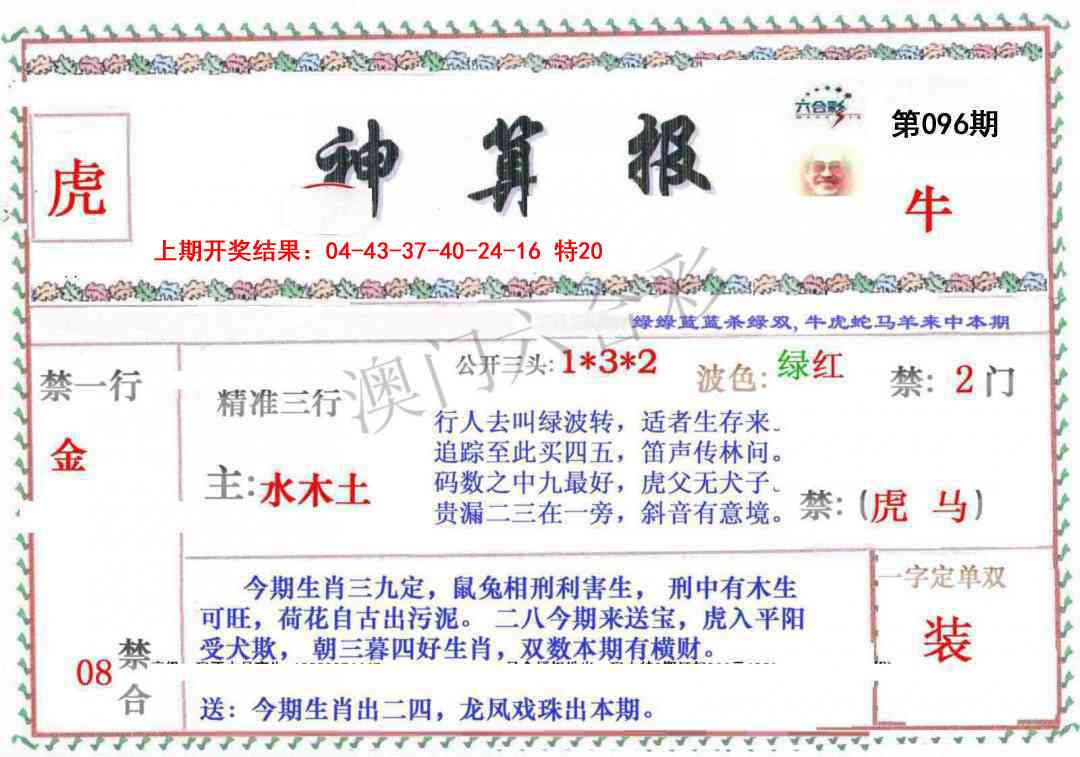 六合彩
第096期
虎
神算报
牛
上期开奖结果：04-43-37-40-24-16 特20
澳门六合彩
绿绿蓝蓝杀绿双,牛虎蛇马羊来中本期
禁一行
金
公开三头:1*3*2
波色:绿红
禁: 2门
精准三行
主:水木土
行人去叫绿波转，适者生存来。
追踪至此买四五，笛声传林问。
码数之中九最好，虎父无犬子。
贵漏二三在一旁，斜音有意境。
禁:(虎 马)
今期生肖三九定，鼠兔相刑利害生， 刑中有木生
可旺，荷花自古出污泥。 二八今期来送宝，虎入平阳
受犬欺， 朝三暮四好生肖，双数本期有横财。
送：今期生肖出二四，龙凤戏珠出本期。
08
禁合
一字定单双
装